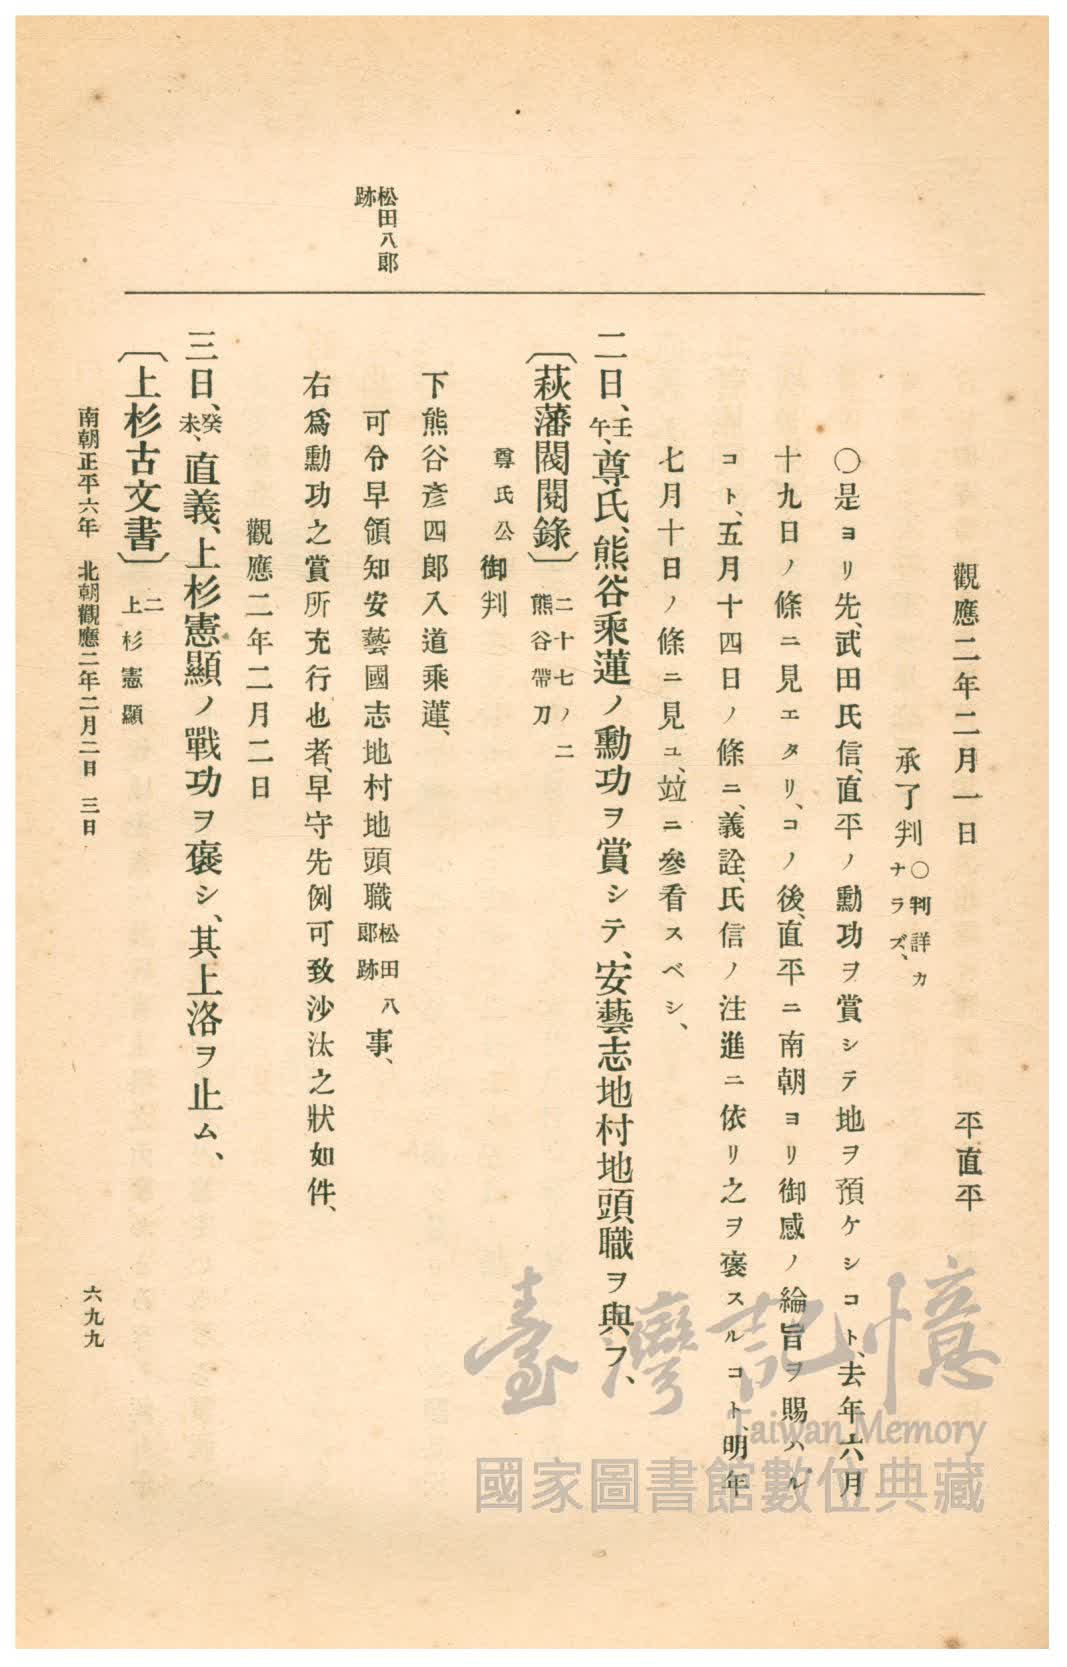 觀應二年二月一日　平直平
承了判〇判詳カナラズ、
〇是ヨリ先、武田氏信、直平ノ勳功ヲ賞シテ地ヲ預ケシコト、去年六月
十九日ノ條ニ見エタリ、コノ後、直平ニ南朝ヨリ御感ノ綸旨ヲ賜ハル
コト、五月十四日ノ條ニ、義詮、氏信ノ注進ニ依リ之ヲ褒スルコト、明年
七月十日ノ條ニ見ユ、竝ニ參看スベシ、
二日、壬午、尊氏、熊谷乘蓮ノ勳功ヲ賞シテ、安藝志地村地頭職ヲ與フ、
〔萩藩閥閱錄〕二十七ノ二熊谷帶刀
尊氏公御判
下熊谷彥四郎入道乘蓮、
松田八郎跡
可令早領知安藝國志地村地頭職松田八郎跡事、
右爲勳功之賞所充行也者、早守先例可致沙汰之狀如件、
觀應二年二月二日
三日、癸未、直義、上杉憲顯ノ戰功ヲ褒シ、其上洛ヲ止ム、
〔上杉古文書〕二上杉憲顯
南朝正平六年　北朝觀應二年二月二日　三日
六九九
臺灣記憶
Taiwan Memory
國家圖書館數位典藏